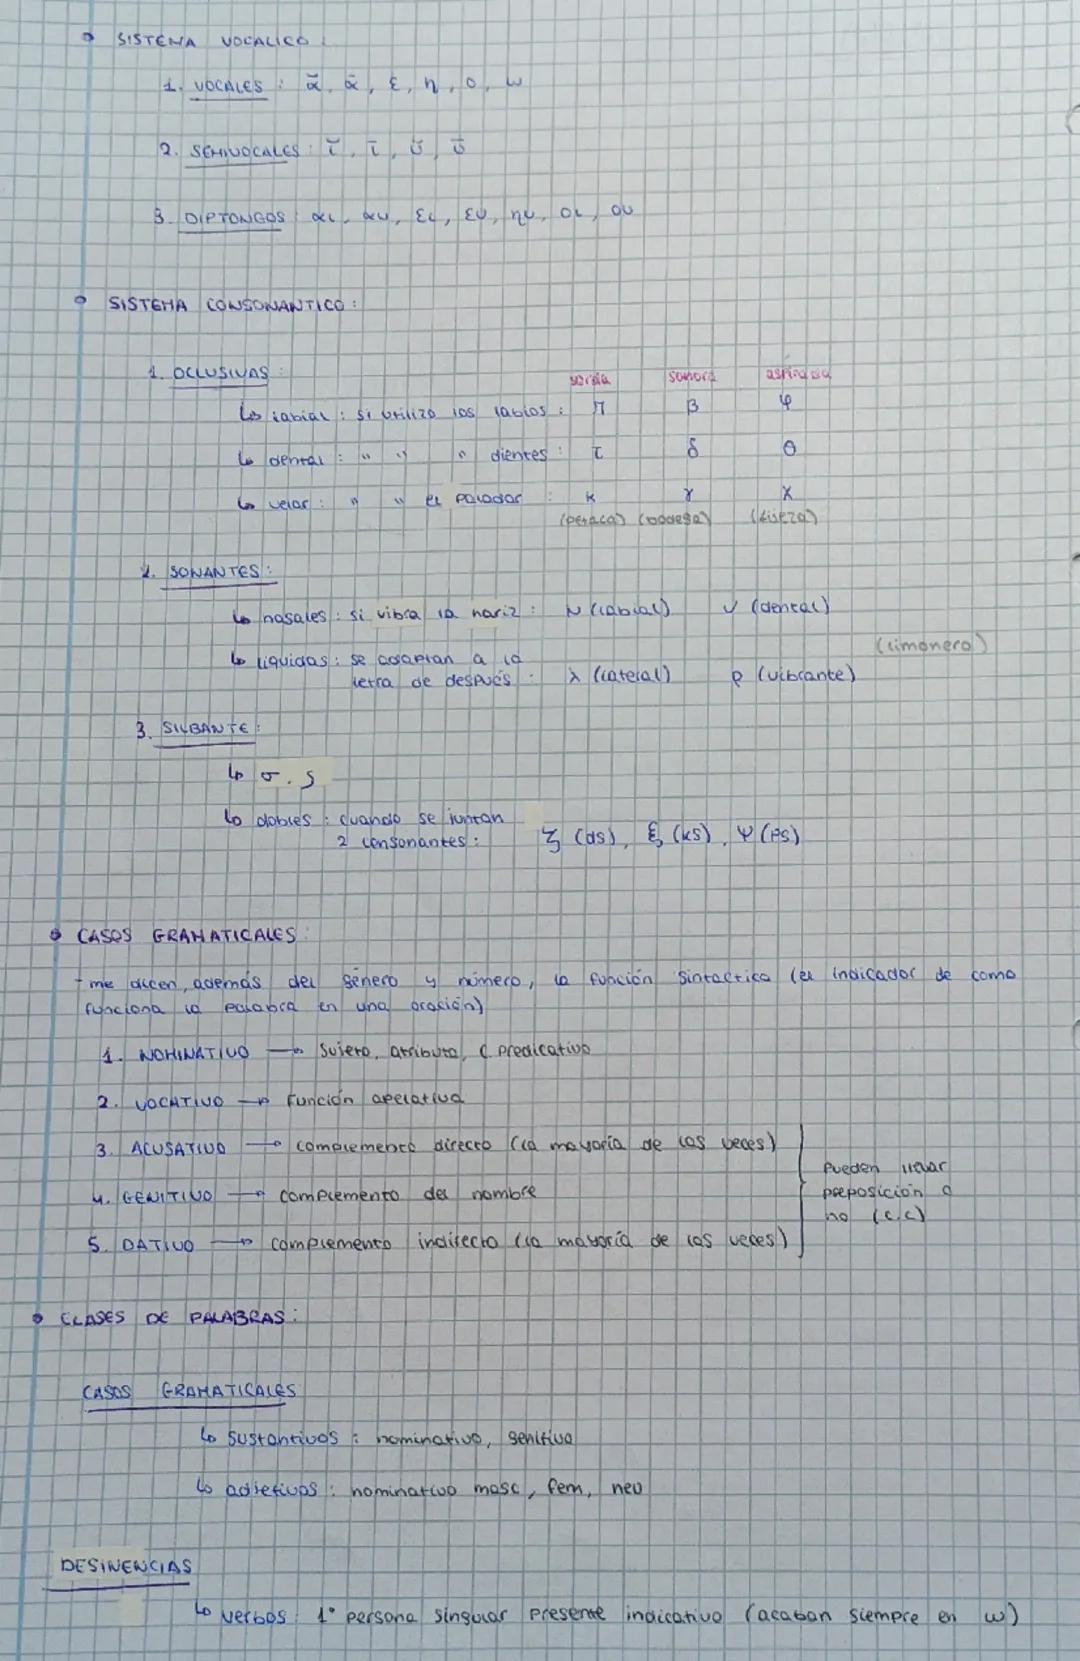 • SISTEMA VOCALICO:
1. VOCALES: ᾰ, ᾱ, ε, η, ο, ω
2. SEMIVOCALES: ῐ, ῑ, ῠ, ῡ
3. DIPTONGOS: αι, αυ, ει, ευ, ηυ, οι, ου
• SISTEMA CONSONANTICO:
1. OCLUSIVAS: sorda sonora aspirada
↳ labial: si utilizo los labios: π β φ
↳ dental: " " " dientes: τ δ θ
↳ velar: " " el paladar: κ γ χ
(petaca) (bodega)
2. SONANTES:
↳ nasales: si vibra la nariz: μ (labial) ν (dental)
(limonero)
↳ liquidas: se adaptan a la
letra de después: λ (lateral) ρ (vibrante)
3. SILBANTE:
↳ σ, ς
↳ dobles: cuando se juntan
2 consonantes: ζ (ds), ξ (ks), ψ (ps)
• CASOS GRAMATICALES:
- me dicen, además del género y número, la función sintactica (el indicador de como
funciona la palabra en una oración)
1. NOMINATIVO → Sujeto, atributo, C predicativo
2. VOCATIVO → Función apelativa
3. ACUSATIVO → complemento directo (la mayoría de las veces)
4. GENITIVO → complemento del nombre
5. DATIVO → complemento indirecto (la mayoría de las veces)
Pueden llevar
preposición o
no (c.c)
• CLASES DE PALABRAS:
CASOS GRAMATICALES
↳ sustantivos: nominativo, genitivo
↳ adjetivos: nominativo masc, fem, neu
DESINENCIAS
↳ verbos: 1° persona singular presente indicativo (acaban siempre en ω)